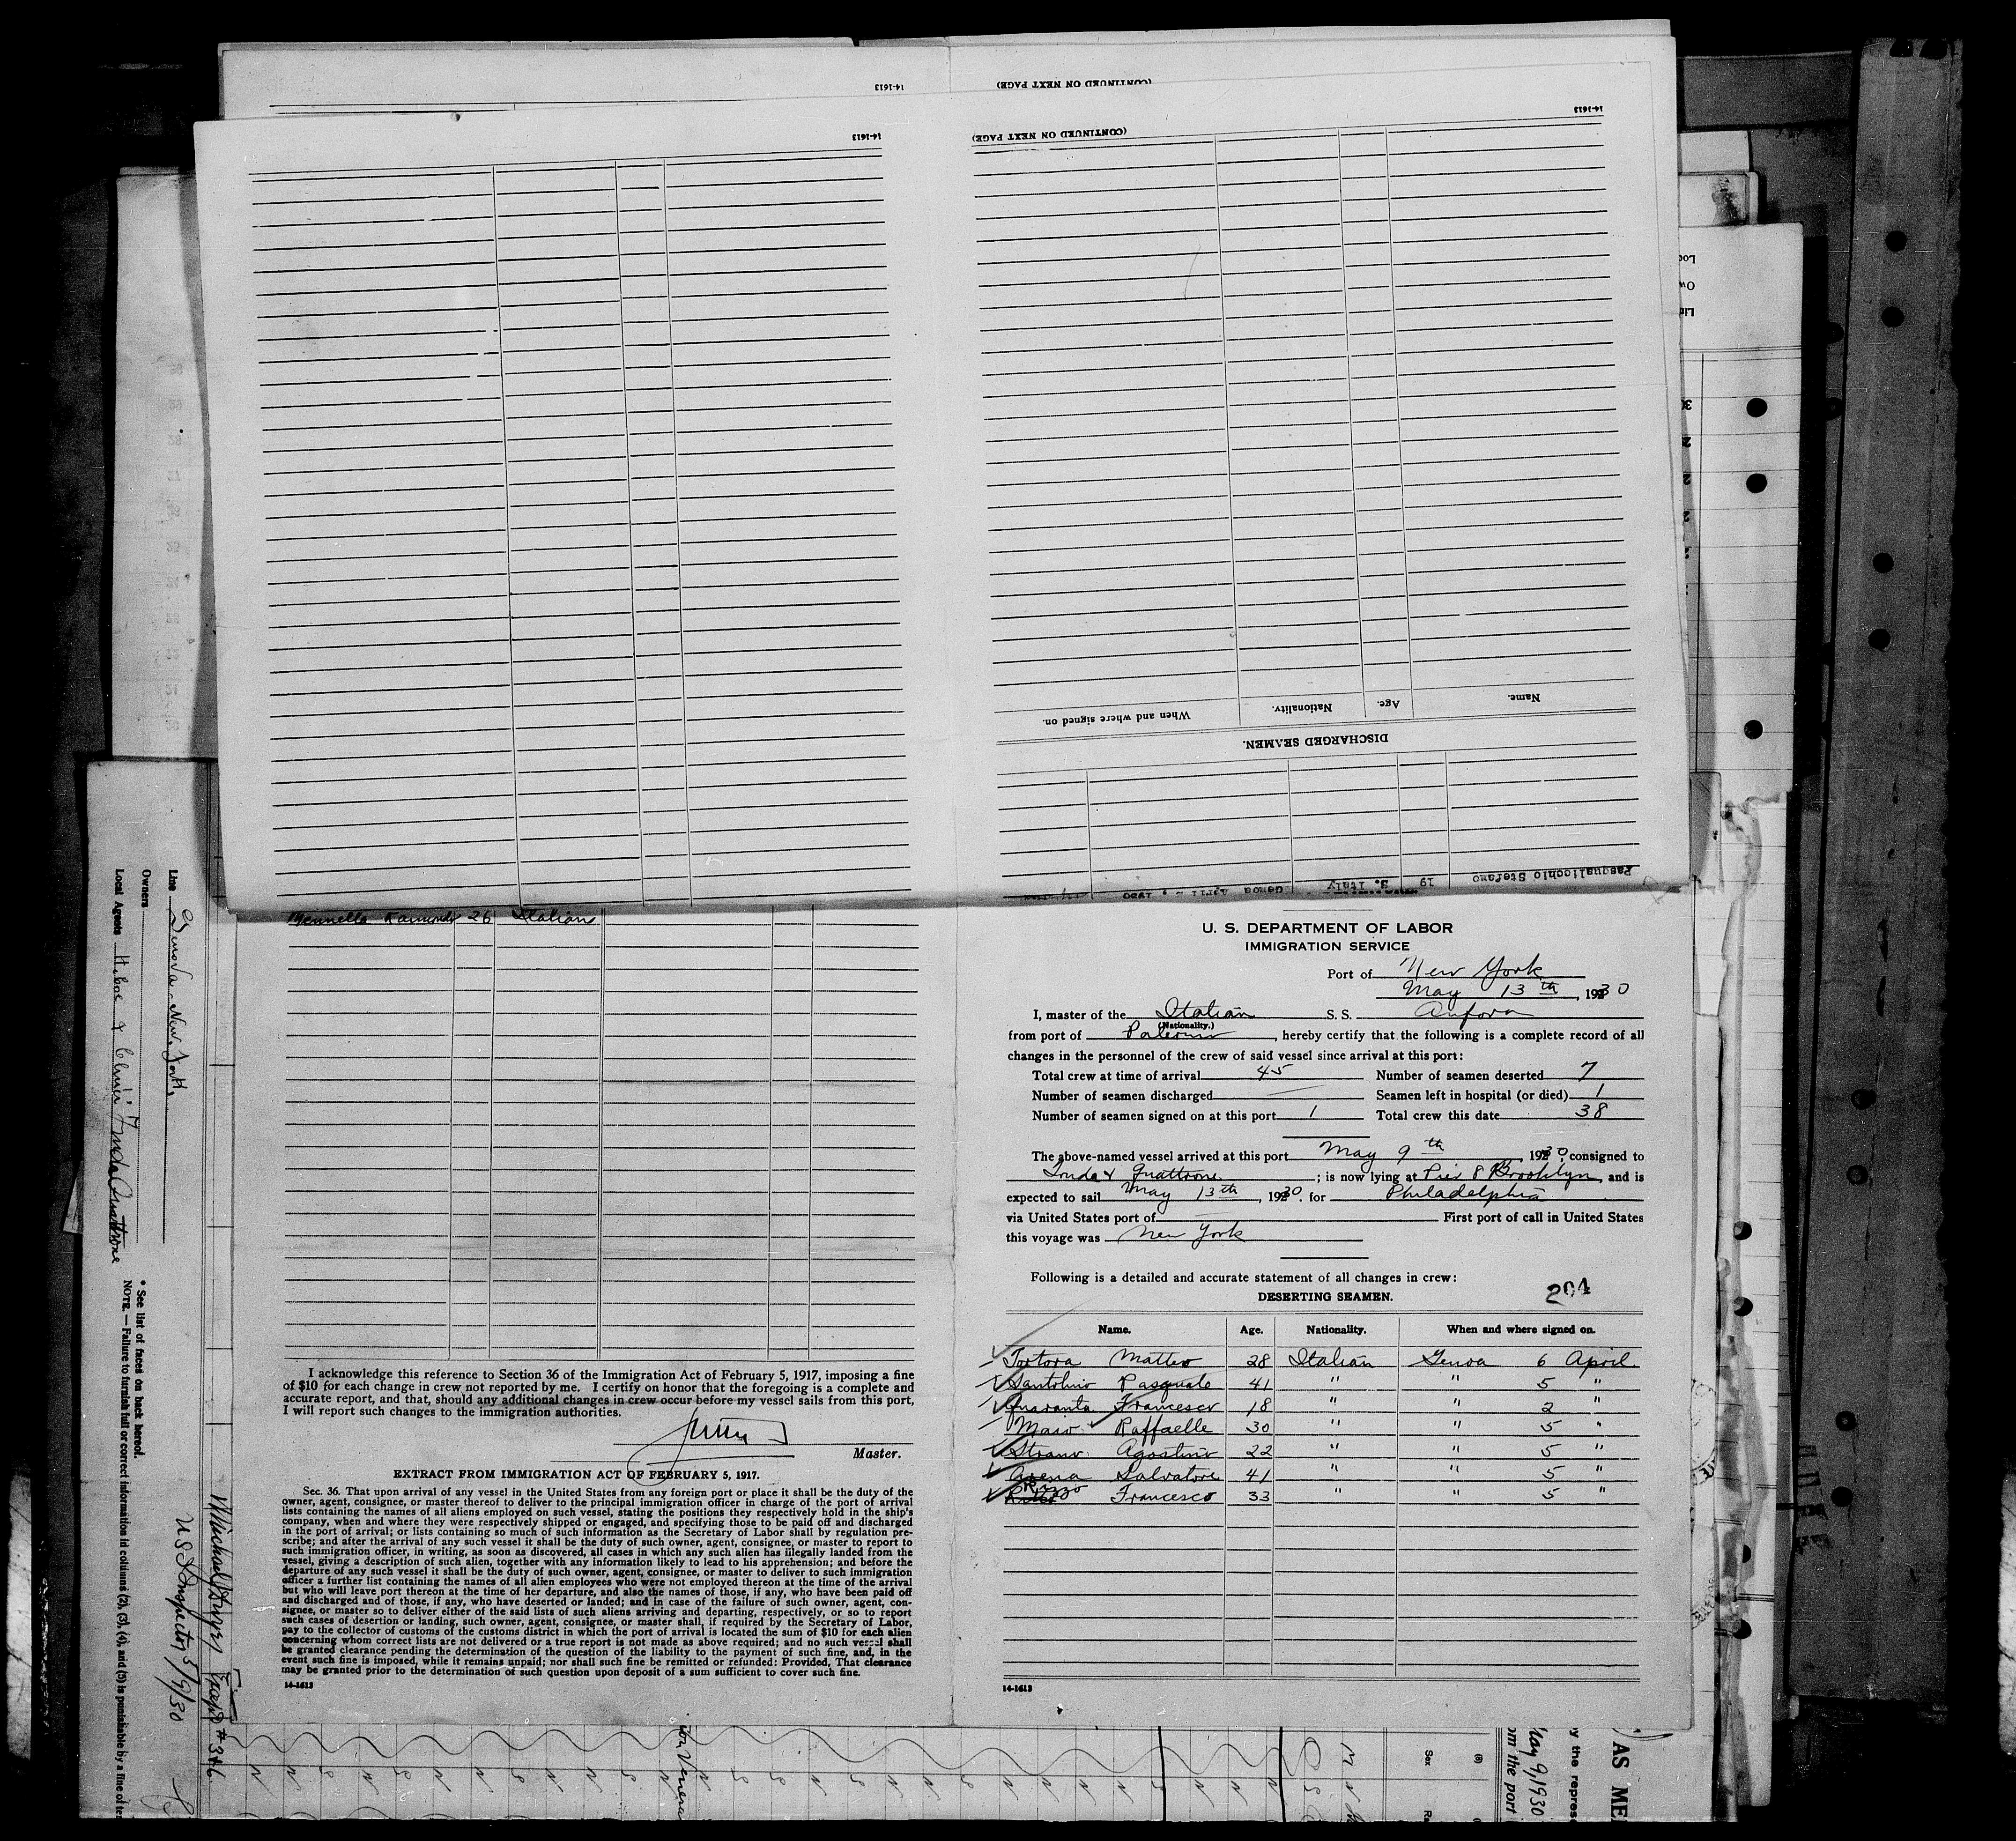 (CONTINUED ON NEXT PAGE)
14-1613
14-1613
(CONTINUED ON NEXT PAGE)
14-1613
Name. Age. Nationality. When and where signed on.
DISCHARGED SEAMEN.
Pasqualicchio Stefano 19 S. Italy Genoa April
Mennella 26 Italian
I acknowledge this reference to Section 36 of the Immigration Act of February 5, 1917, imposing a fine
of $10 for each change in crew not reported by me. I certify on honor that the foregoing is a complete and
accurate report, and that, should any additional changes in crew occur before my vessel sails from this port,
I will report such changes to the immigration authorities.
Master.
EXTRACT FROM IMMIGRATION ACT OF FEBRUARY 5, 1917.
Sec. 36. That upon arrival of any vessel in the United States from any foreign port or place it shall be the duty of the
owner, agent, consignee, or master thereof to deliver to the principal immigration officer in charge of the port of arrival
lists containing the names of all aliens employed on such vessel, stating the positions they respectively hold in the ship's
company, when and where they were respectively shipped or engaged, and specifying those to be paid off and discharged
in the port of arrival; or lists containing so much of such information as the Secretary of Labor shall by regulation pre-
scribe; and after the arrival of any such vessel it shall be the duty of such owner, agent, consignee, or master to report to
such immigration officer, in writing, as soon as discovered, all cases in which any such alien has illegally landed from the
vessel, giving a description of such alien, together with any information likely to lead to his apprehension; and before the
departure of any such vessel it shall be the duty of such owner, agent, consignee, or master to deliver to such immigration
officer a further list containing the names of all alien employees who were not employed thereon at the time of the arrival
but who will leave port thereon at the time of her departure, and also the names of those, if any, who have been paid off
and discharged and of those, if any, who have deserted or landed; and in case of the failure of such owner, agent, con-
signee, or master so to deliver either of the said lists of such aliens arriving and departing, respectively, or so to report
such cases of desertion or landing, such owner, agent, consignee, or master shall, if required by the Secretary of Labor,
pay to the collector of customs of the customs district in which the port of arrival is located the sum of $10 for each alien
concerning whom correct lists are not delivered or a true report is not made as above required; and no such vessel shall
be granted clearance pending the determination of the question of the liability to the payment of such fine, and, in the
event such fine is imposed, while it remains unpaid; nor shall such fine be remitted or refunded: Provided, That clearance
may be granted prior to the determination of such question upon deposit of a sum sufficient to cover such fine.
14-1613
U. S. DEPARTMENT OF LABOR
IMMIGRATION SERVICE
Port of New York
May 13th, 1930
I, master of the Italian S. S. Anfora
(Nationality.)
from port of Palermo, hereby certify that the following is a complete record of all
changes in the personnel of the crew of said vessel since arrival at this port:
Total crew at time of arrival 45 Number of seamen deserted 7
Number of seamen discharged Seamen left in hospital (or died) 1
Number of seamen signed on at this port 1 Total crew this date 38
The above-named vessel arrived at this port May 9th, 1930, consigned to
Quattrone; is now lying at Pier 8 Brooklyn, and is
expected to sail May 13th, 1930. for Philadelphia
via United States port of First port of call in United States
this voyage was New York
Following is a detailed and accurate statement of all changes in crew:
DESERTING SEAMEN. 204
Name. Age. Nationality. When and where signed on.
Tortora Matteo 28 Italian Genoa 6 April
Santolino Pasquale 41 " " 5 "
Quaranta Francesco 18 " " 2 "
Maio Raffaelle 30 " " 5 "
Strano Agostino 22 " " 5 "
Arena Salvatore 41 " " 5 "
Francesco 33 " " 5 "
14-1613
Line Genova-New York
Owners
Local Agents
* See list of races on back hereof.
NOTE.—Failure to furnish full or correct information in columns (2), (3), (4), and (5) is punishable by a fine of
US Inspector 5/9/30
Sex
May 9, 1930
om the port
y the repres
AS ME